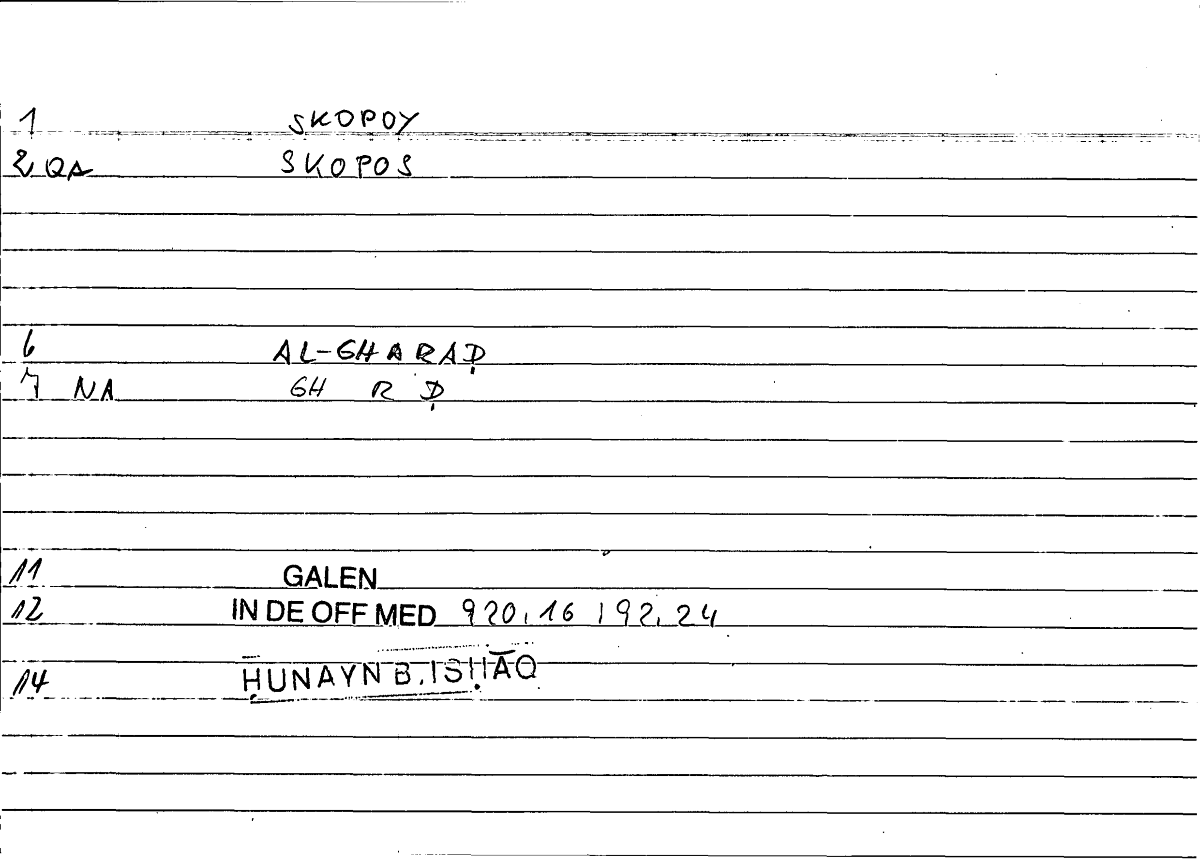 1 SKOPOY
2 QA SKOPOS
6 AL-GHARAḌ
7 NA GH R Ḍ
11 GALEN
12 IN DE OFF MED 920,16 / 92,24
14 ḤUNAYN B. ISḤĀQ